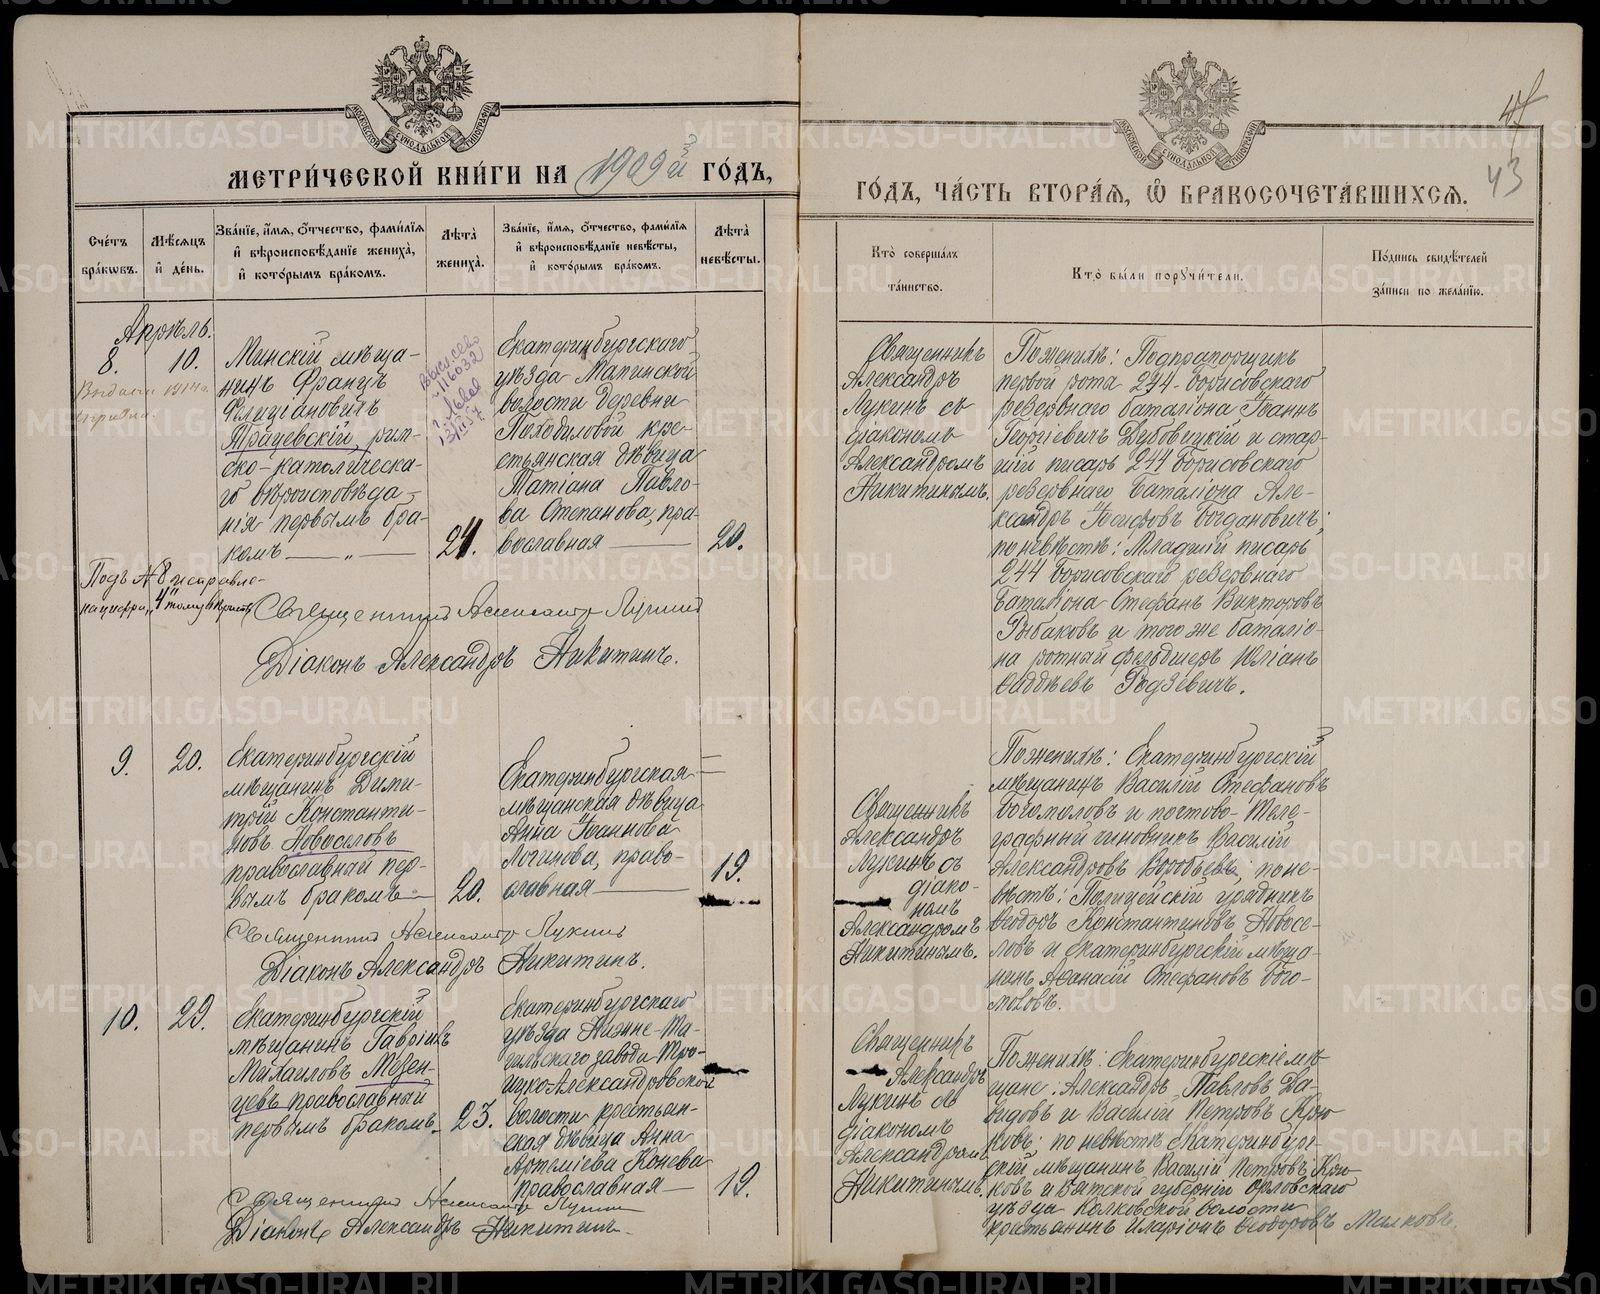 МЕТРИ́ЧЕСКОЙ КНИ́ГИ НА 1909й ГО́ДЪ,
Сче́тъ бра́кѡвъ.
Мѣ́сяцъ и҆ де́нь.
Зва́нїе, и҆́мѧ, ѻ҆́тчество, фами́лїѧ и҆ вѣроисповѣ́данїе жениха̀, и҆ кото́рымъ бра́комъ.
Лѣ́та жениха̀.
Зва́нїе, и҆́мѧ, ѻ҆́тчество, фами́лїѧ и҆ вѣроисповѣ́данїе невѣ́сты, и҆ кото́рымъ бра́комъ.
Лѣ́та невѣ́сты.
Апрѣль.
8.
10.
Минскій мѣща-
нинъ Францъ
Фелиціановичъ
Трацевскій, рим-
ско-католическа-
го вѣроисповѣда-
нія первымъ бра-
комъ — „ —
24.
Екатеринбургскаго
уѣзда Мапинской
волости деревни
Походиловой кре-
стьянская дѣвица
Татіана Павло-
ва Степанова, пра-
вославная
20.
Подъ № 8 исправле-
на цифра „4"
Священникъ Александръ Лукинъ
Діаконъ Александръ Никитинъ.
9.
20.
Екатеринбургскій
мѣщанинъ Дими-
трій Константи-
новъ Новоселовъ
православный пер-
вымъ бракомъ
20.
Екатеринбургская
мѣщанская дѣвица
Анна Іоаннова
Логинова, право-
славная
19.
Священникъ Александръ Лукинъ
Діаконъ Александръ Никитинъ.
10.
29.
Екатеринбургскій
мѣщанинъ Гавріилъ
Михаиловъ Мезен-
цевъ православный
первымъ бракомъ.
23.
Екатеринбургскаго
уѣзда Нижне-Та-
гильскаго завода Тро-
ицко-Александровской
волости крестьян-
ская дѣвица Анна
Артеміева Конева
православная
19.
Священникъ Александръ Лукинъ
Діаконъ Александръ Никитинъ.
43
ГО́ДЪ, ЧА́СТЬ ВТОРА́Ѧ, Ѡ҆ БРАКОСОЧЕТА́ВШИХСѦ.
Кто̀ соверша́лъ та́инство.
Кто̀ бы́ли поручи́тели.
По́дпись свидѣ́телей за́писи по жела́нїю.
Священникъ
Александръ
Лукинъ съ
діакономъ
Александромъ
Никитинымъ.
По женихѣ: Подпрапорщикъ
первой рота 244-Борисовскаго
резервнаго баталіона Іоаннъ
Георгіевичъ Дубовицкій и стар-
шій писарь 244 Борисовскаго
резервнаго баталіона Але-
ксандръ Іосифовъ Богдановичъ;
по невѣстѣ: Младшій писарь
244 Борисовскаго резервнаго
баталіона Стефанъ Викторовъ
Рыбаковъ и того же баталіо-
на ротный фельдшеръ Юліанъ
Ѳаддѣевъ Родзевичъ.
Священникъ
Александръ
Лукинъ съ
діако-
номъ
Александромъ
Никитинымъ.
По женихѣ: Екатеринбургскій
мѣщанинъ Василій Стефановъ
Богомоловъ и почтово-Теле-
графный чиновникъ Василій
Александровъ Воробьевъ; по не-
вѣстѣ: Полицейскій урядникъ
Ѳеодоръ Константиновъ Новосе-
ловъ и Екатеринбургскій мѣща-
нинъ Аѳанасій Стефановъ Бого-
моловъ.
Священникъ
Александръ
Лукинъ съ
діакономъ
Александромъ
Никитинымъ.
По женихѣ: Екатеринбургскіе мѣ-
щане: Александръ Павловъ Да-
видовъ и Василій Петровъ Крю-
ковъ; по невѣстѣ Екатеринбург-
скій мѣщанинъ Василій Петровъ Крю-
ковъ и Вятской губерніи Орловскаго
уѣзда Колковской волости
крестьянинъ Иларіонъ Ѳеодоровъ Малковъ.